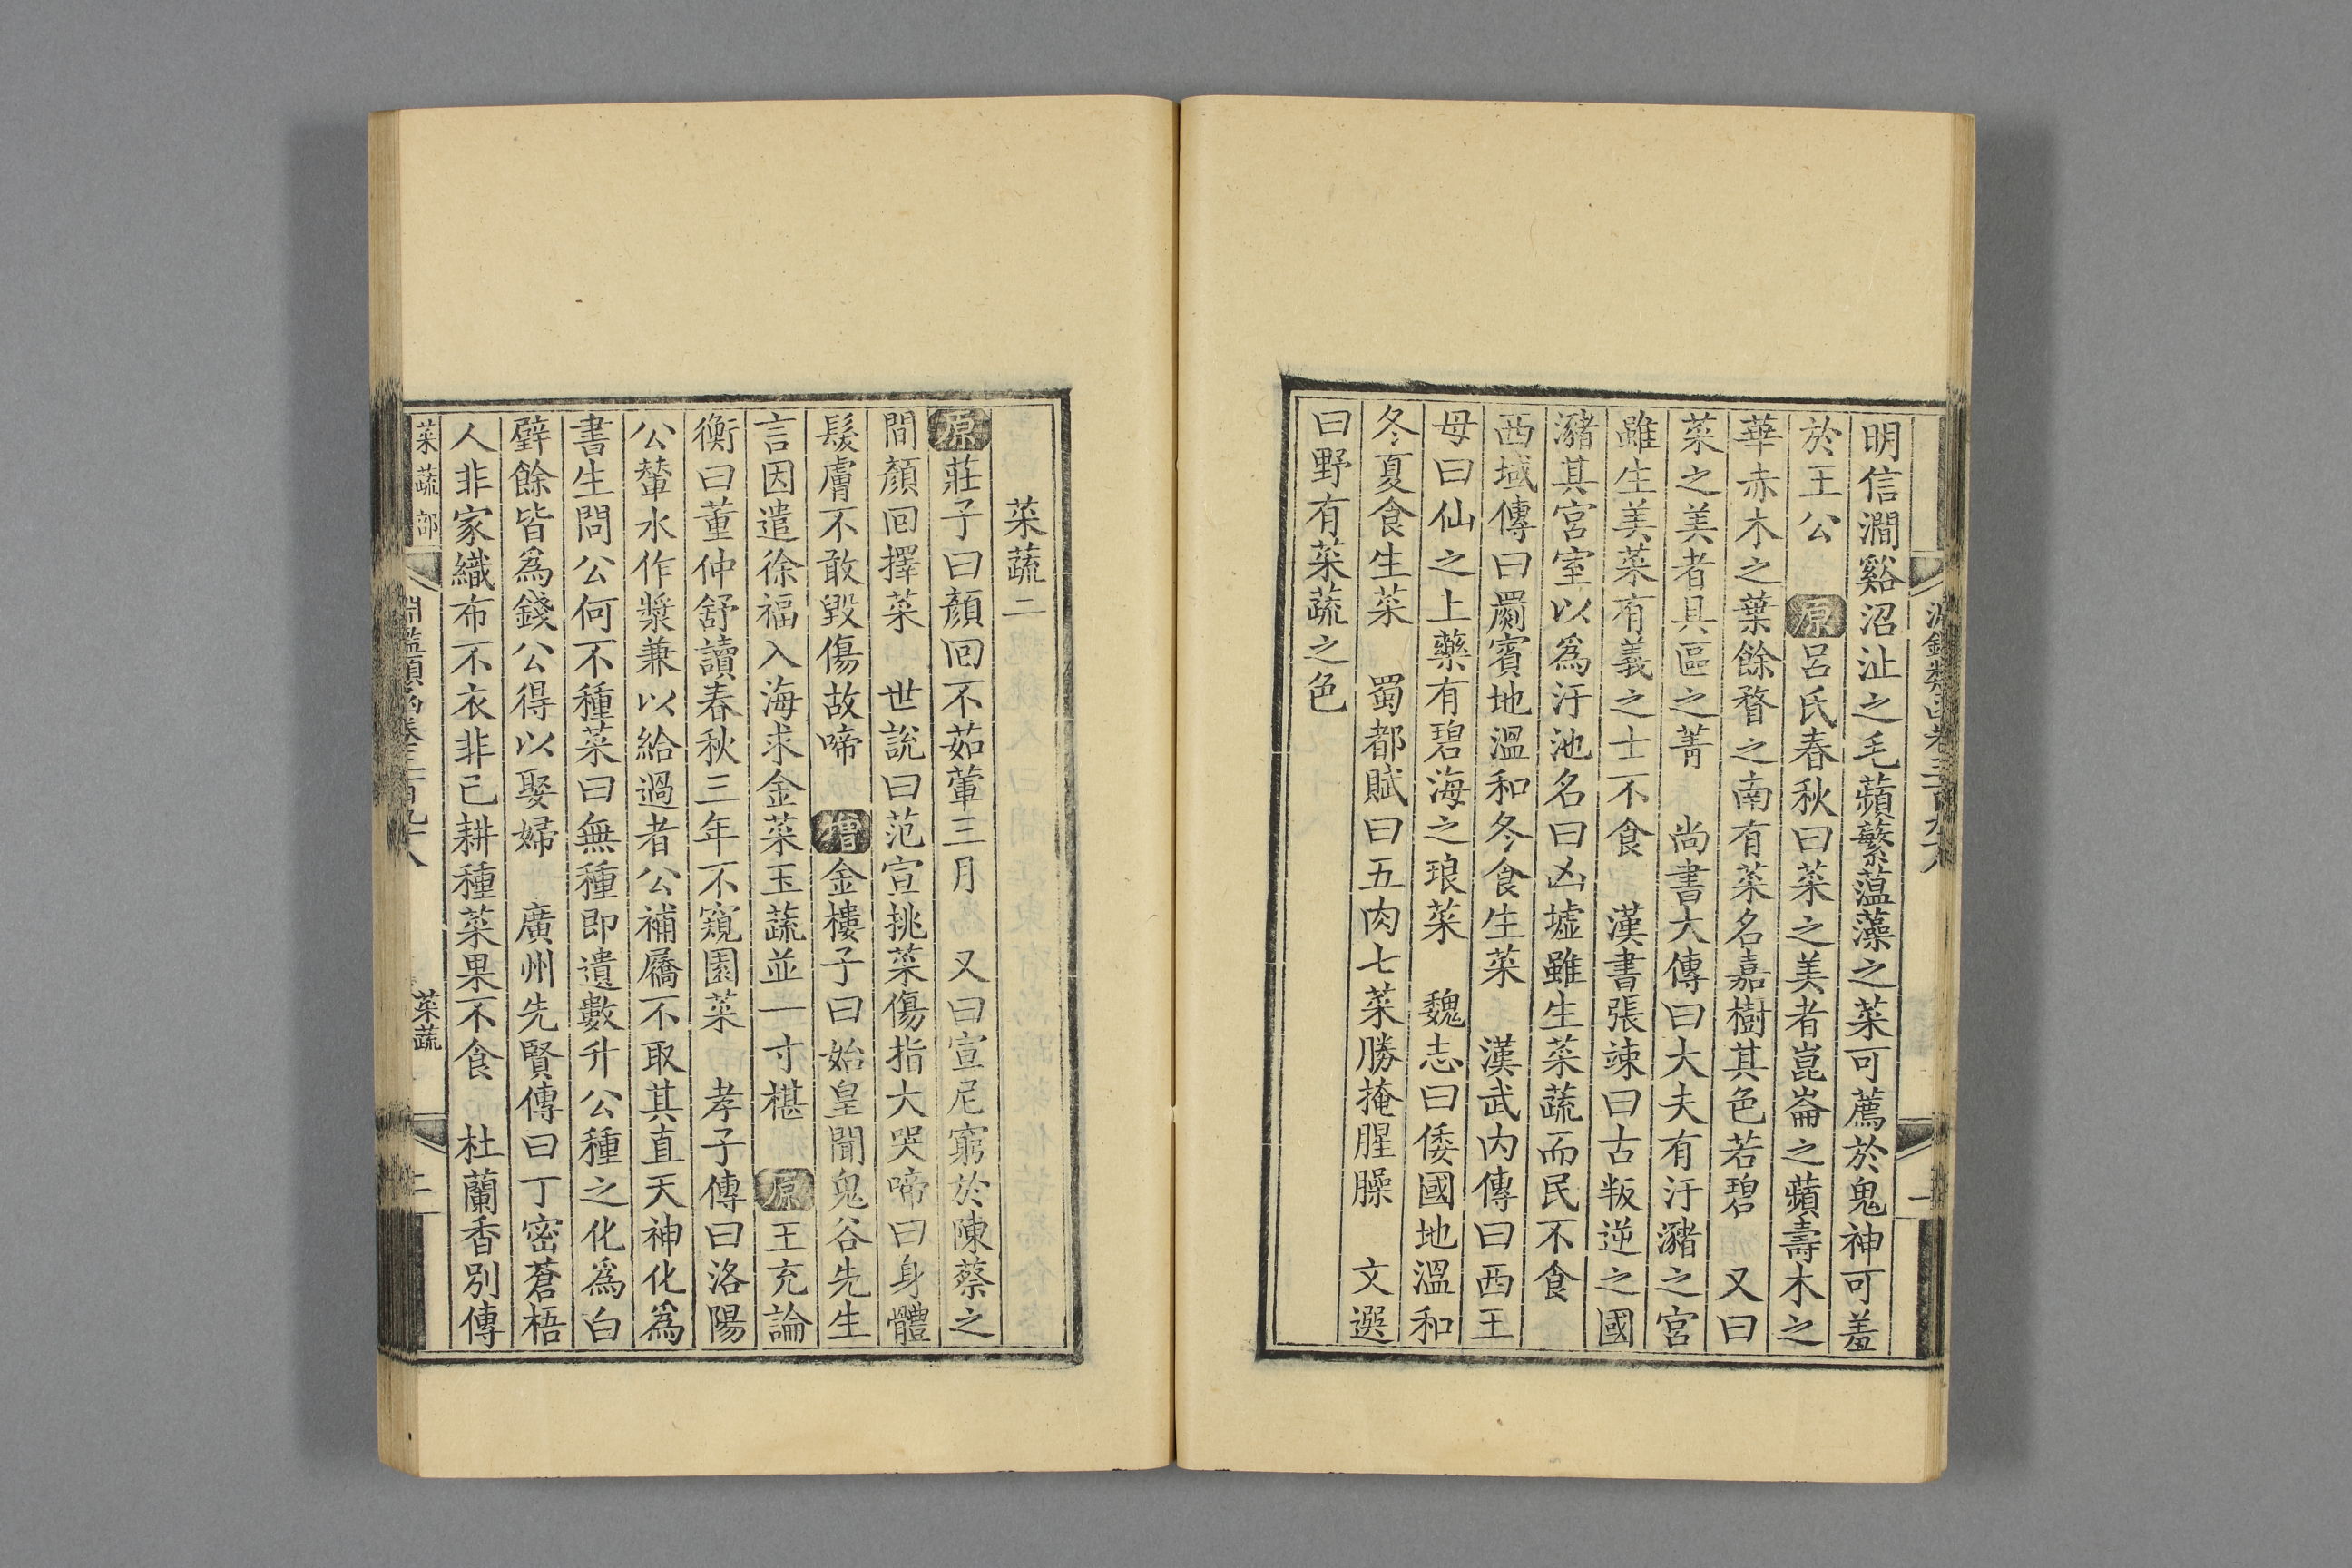 淵鑑類函卷三百九十八
一
明信澗谿沼沚之毛蘋蘩薀藻之菜可薦於鬼神可羞
於王公 原 呂氏春秋曰菜之美者崑崙之蘋壽木之
華赤木之葉餘瞀之南有菜名嘉樹其色若碧 又曰
菜之美者具區之菁 尚書大傳曰大夫有汙瀦之宮
雖生美菜有義之士不食 漢書張竦曰古叛逆之國
瀦其宮室以爲汙池名曰凶墟雖生菜蔬而民不食
西域傳曰罽賓地溫和冬食生菜 漢武内傳曰西王
母曰仙之上藥有碧海之琅菜 魏志曰倭國地溫和
冬夏食生菜 蜀都賦曰五肉七菜勝掩腥臊 文選
曰野有菜蔬之色
菜蔬二
原 莊子曰顏回不茹葷三月 又曰宣尼窮於陳蔡之
間顏回擇菜 世說曰范宣挑菜傷指大哭啼曰身體
髮膚不敢毀傷故啼 增 金樓子曰始皇聞鬼谷先生
言因遣徐福入海求金菜玉蔬並一寸椹 原 王充論
衡曰董仲舒讀春秋三年不窺園菜 孝子傳曰洛陽
公輦水作漿兼以給過者公補屩不取其直天神化爲
書生問公何不種菜曰無種即遺數升公種之化爲白
璧餘皆爲錢公得以娶婦 廣州先賢傳曰丁密蒼梧
人非家織布不衣非己耕種菜果不食 杜蘭香別傳
菜蔬部
淵鑑類函卷三百九十八
菜蔬
二